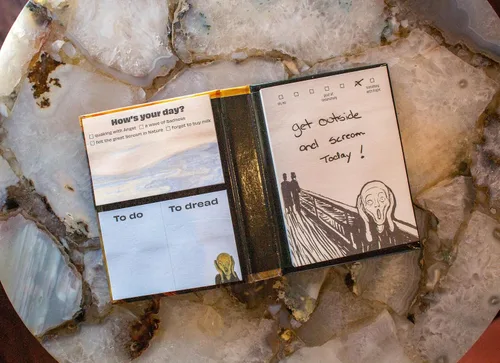 How's your day?
Quaking with Angst a wave of Sadness
Felt the great Scream in Nature Forgot to buy milk
To do
To dread
Get Outside
and Scream
Today!